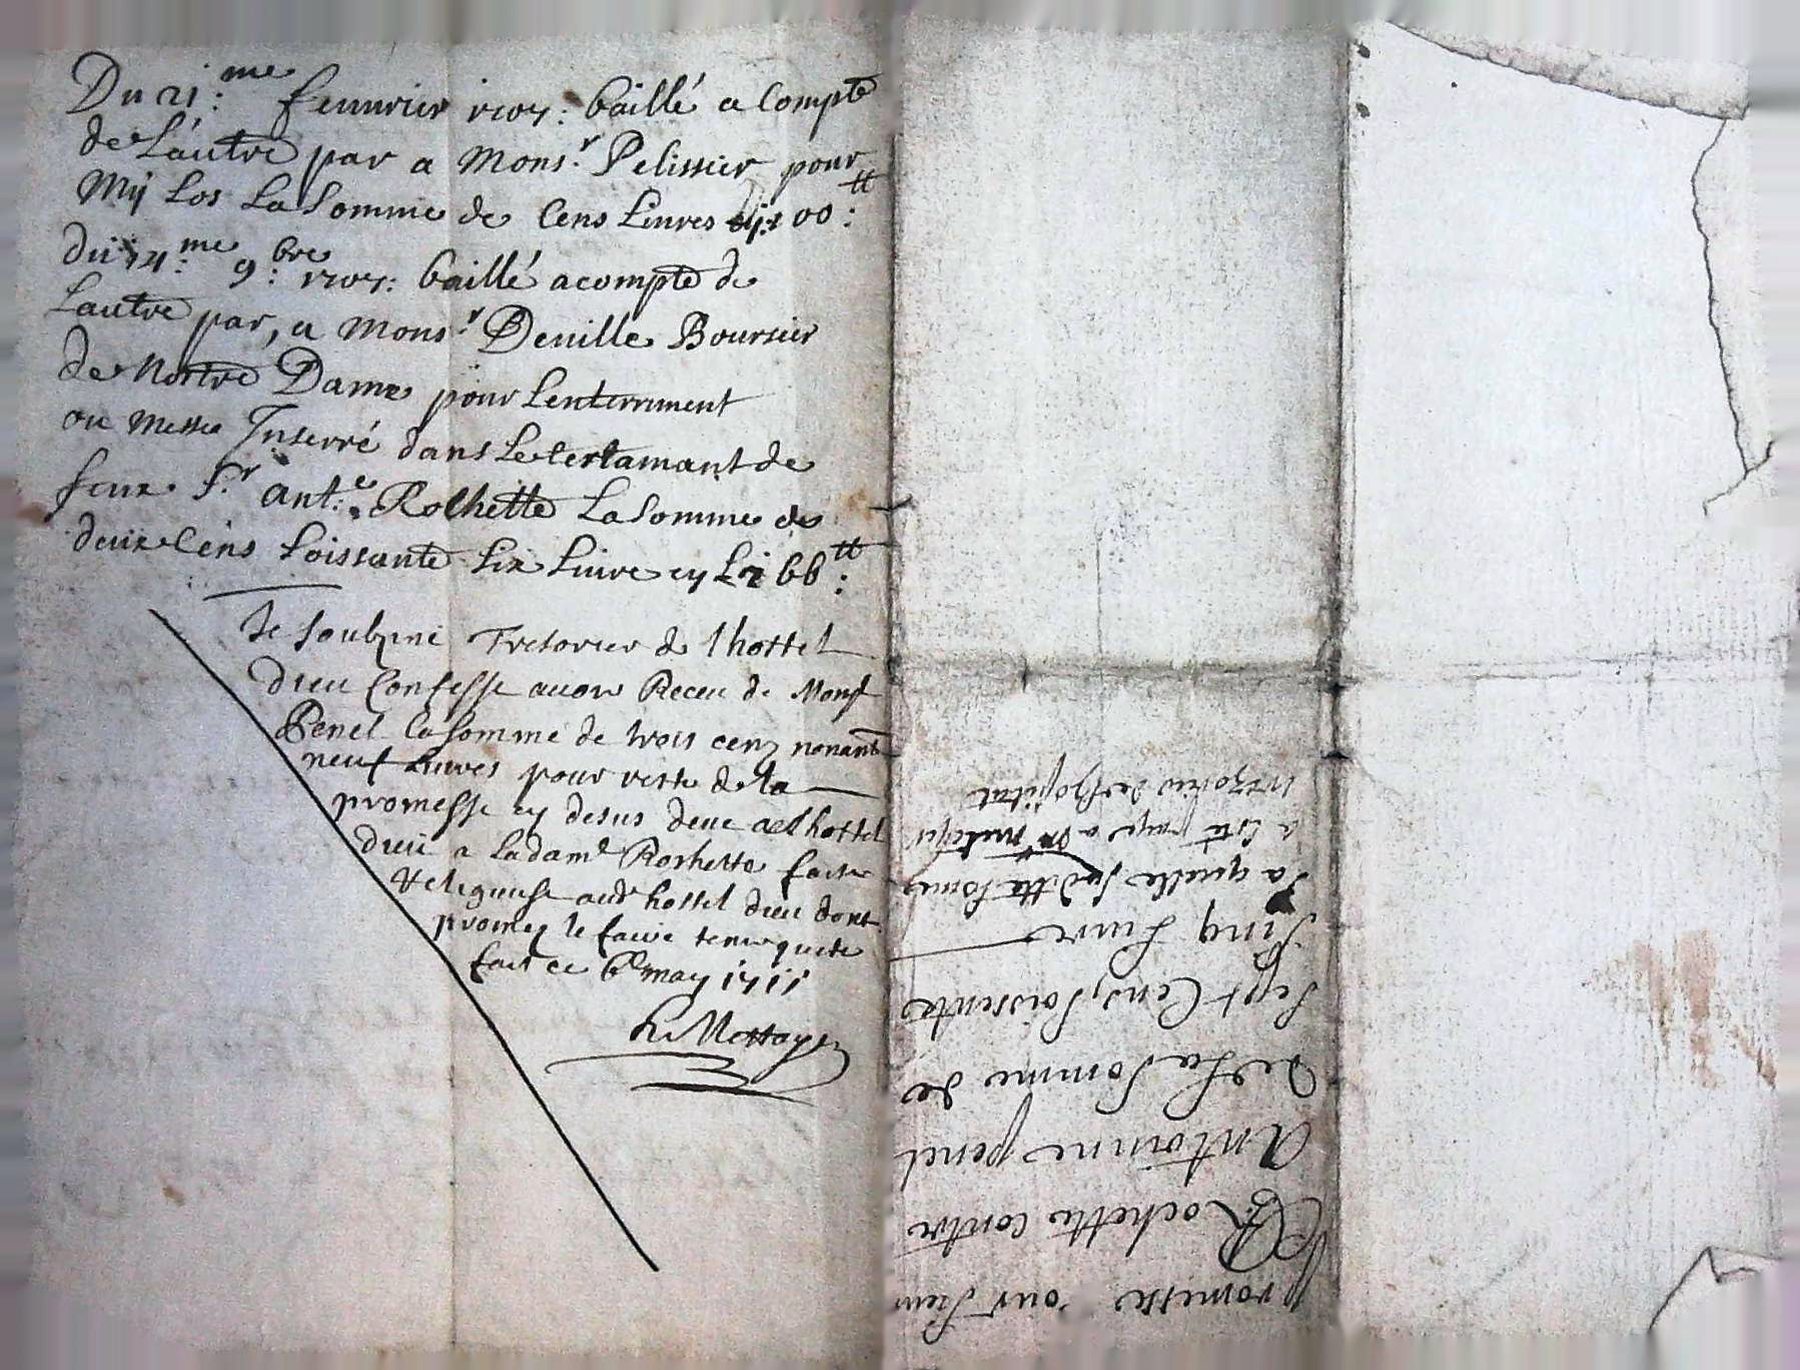 Du 21:me feuvrier 1707: baillé a Compte
de Lautre par a Mons.r Pelissier pour
Mij Los La Somme de Cens Liuvres 100:tt
du 14:me 9:bre 1707: baillé acompte de
Lautre par, a Mons.r Deuille Boursier
de Nostre Dame pour Lenterrument
ou Messe Inserré dans Le testamant de
feux S.r Ant:e Rochette La Somme de
deux Cens Soissante Six Livre cy L 266tt:
Je soubzine Tresorier de lhostel
dieu Confesse avoir Receu de Monsr
Penel la somme de trois cenz nonante
neuf Livres pour reste de la
promesse cy desus deue a lhostel
dieu a La dam.e Rochette faite
religieuse aud hostel dieu dont
promez le faire tenir quite
fait ce 6e may 1711
Mottoye
Promesse pour Sieur
Rochette contre
Antoinne penel
de La Somme de
Sept Cens Soissente
Sinq Livre
La quelle ditte Somme
a Esté paye a
trezorier de hospital